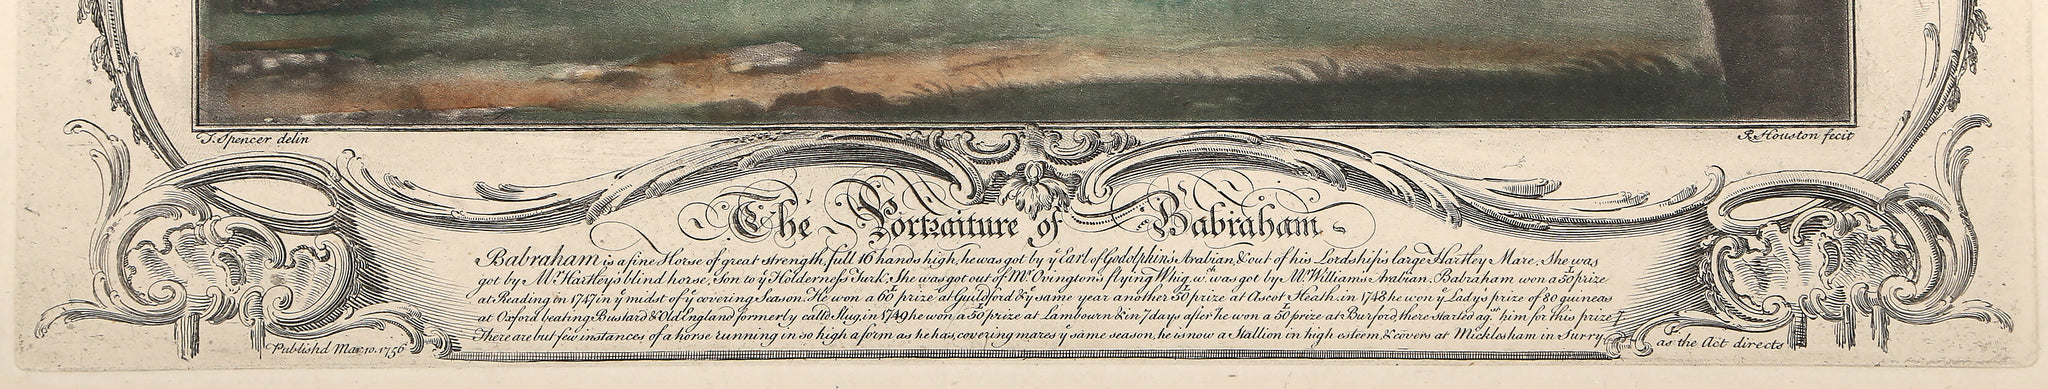 T. Spencer delin
R. Houston fecit
The Portraiture of Babraham
Babraham is a fine Horse of great strength, full 16 hands high, he was got by yͤ Earl of Godolphins Arabian, & out of his Lordships large Hartley Mare, She was
got by Mr. Hartleys blind horse, Son to yͤ Holderness Turk; She was got out of Mr. Ovingtons flying Whig, wͨʰ was got by Mr. Williams's Arabian. Babraham won a 50ˡ prize
at Reading in 1747 in yͤ midst of yͤ covering Season. He won a 60ˡ prize at Guildford & yͤ same year another 50ˡ prize at Ascot Heath. in 1748 he won yͤ Ladys prize of 80 guineas
at Oxford beating Bustard & Old England formerly calld Slug, in 1749 he won a 50 prize at Lambourn & in 7 days after he won a 50 prize at Burford, there started agˢᵗ him for this prize 7.
There are but few instances of a horse running in so high a form as he has, covering mares yͤ same season, he is now a Stallion in high esteem, & covers at Micklesham in Surry
Publishd Mar. 10. 1756
as the Act directs